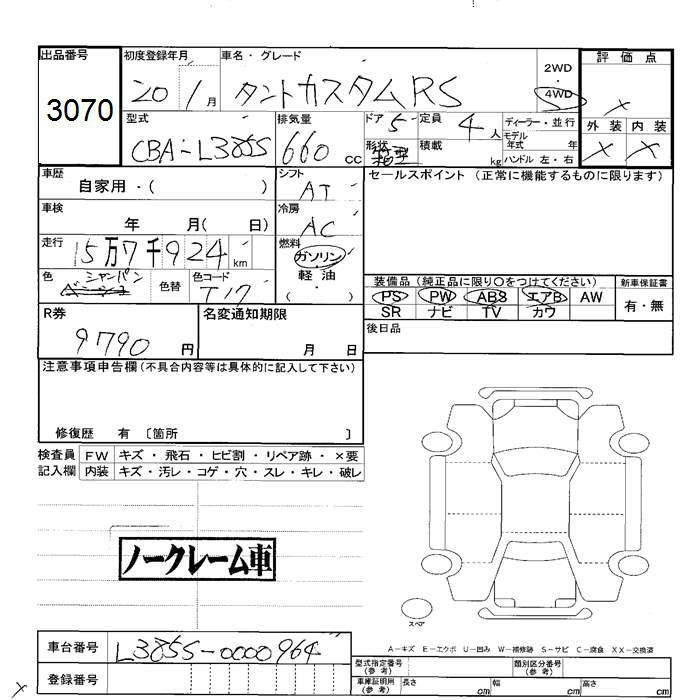 出品番号 初度登録年月 車名・グレード 2WD 評価点
3070 20 1月 タントカスタムRS 4WD ×
型式 排気量 ドア 5 定員 4人 ディーラー・並行 外装 内装
CBA-L385S 660cc 形状 箱型 積載 kg モデル年式 年 × ×
ハンドル 左・右
車歴 自家用・( ) シフト AT セールスポイント (正常に機能するものに限ります)
車検 年 月( 日) 冷房 AC
走行 15万7千924km 燃料 ガソリン
色 シャンパン 色替 色コード T17 軽油 ( ) 装備品 (純正品に限り○をつけてください) 新車保証書
PS PW ABS エアB AW 有・無
SR ナビ TV カワ
R券 9790円 名変通知期限 月 日 後日品
注意事項申告欄 (不具合内容等は具体的に記入して下さい)
修復歴 有 〔箇所 〕
検査員 FW キズ・飛石・ヒビ割・リペア跡・×要
記入欄 内装 キズ・汚レ・コゲ・穴・スレ・キレ・破レ
ノークレーム車
スペア
A-キズ E-エクボ U-凹み W-補修跡 S-サビ C-腐食 XX-交換済
車台番号 L385S-0000964
登録番号
型式指定番号 (参考) 類別区分番号 (参考)
車庫証明用 (参考) 長さ cm 幅 cm 高さ cm
×